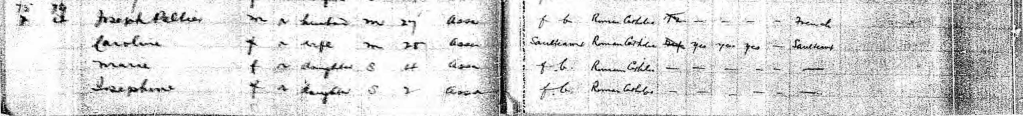 Joseph Pellier m r husband m 27 Assa f. b. Roman Catholic - - - - French
Caroline f r wife m 25 Assa Saulteaux Roman Catholic yes yes yes - Saulteaux
Marie f r daughter S 4 Assa f. b. Roman Catholic - - - - -
Josephine f r daughter S 2 Assa f. b. Roman Catholic - - - - -